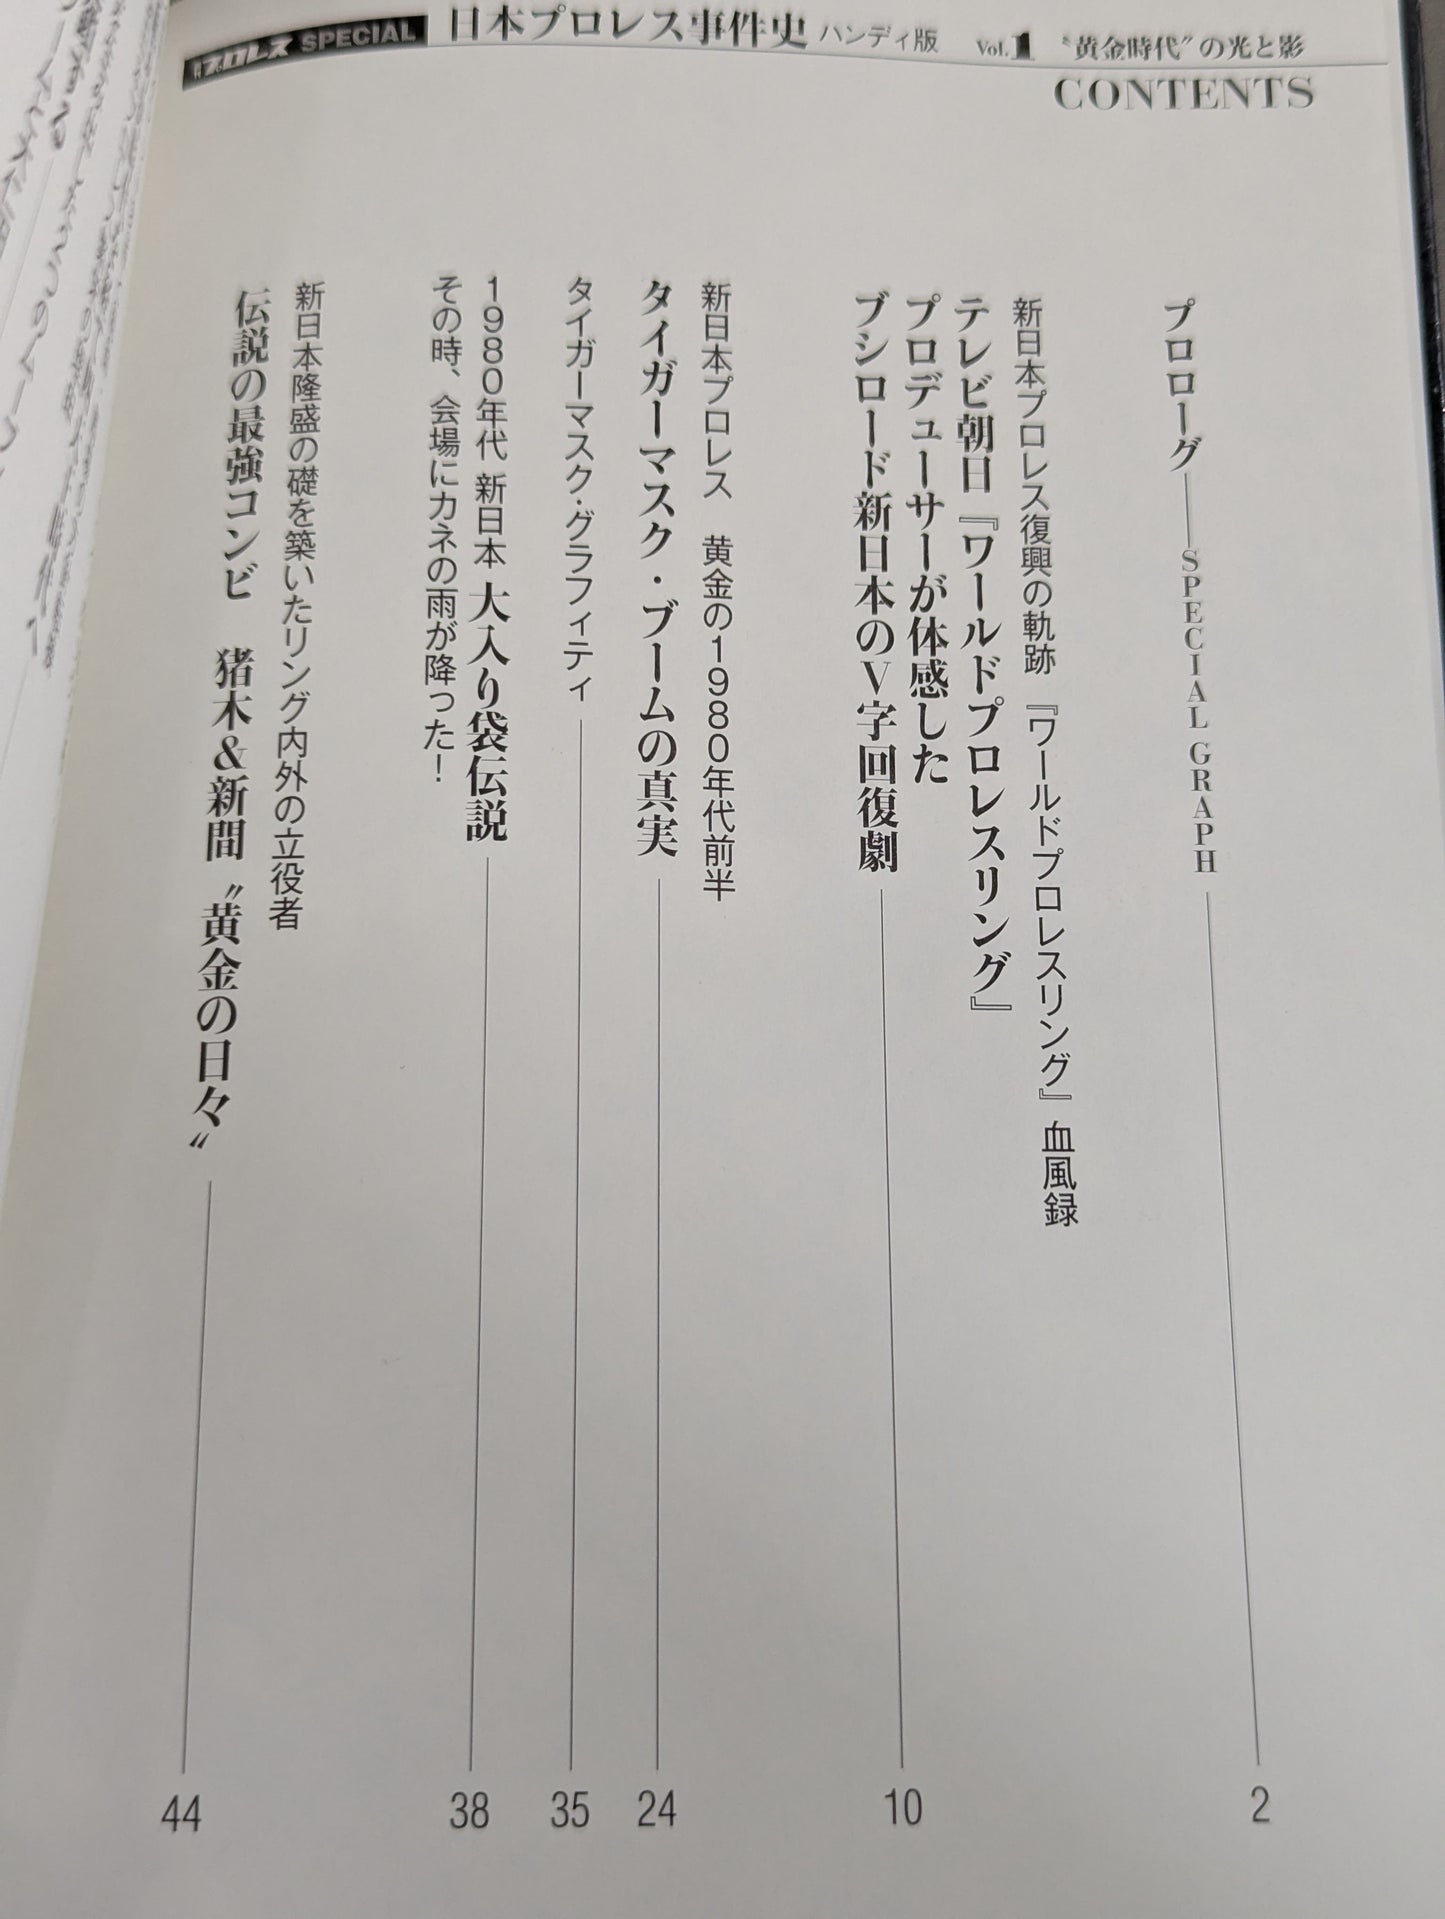 プロレス SPECIAL 日本プロレス事件史 ハンディ版 Vol.1 〝黄金時代〟の光と影
CONTENTS
プロローグ――SPECIAL GRAPH 2
新日本プロレス復興の軌跡 『ワールドプロレスリング』血風録
テレビ朝日『ワールドプロレスリング』
プロデューサーが体感した
ブシロード新日本のV字回復劇 10
新日本プロレス 黄金の1980年代前半
タイガーマスク・ブームの真実 24
タイガーマスク・グラフィティ 35
1980年代 新日本 大入り袋伝説 38
その時、会場にカネの雨が降った！
新日本隆盛の礎を築いたリング内外の立役者
伝説の最強コンビ 猪木&新間〝黄金の日々〟 44